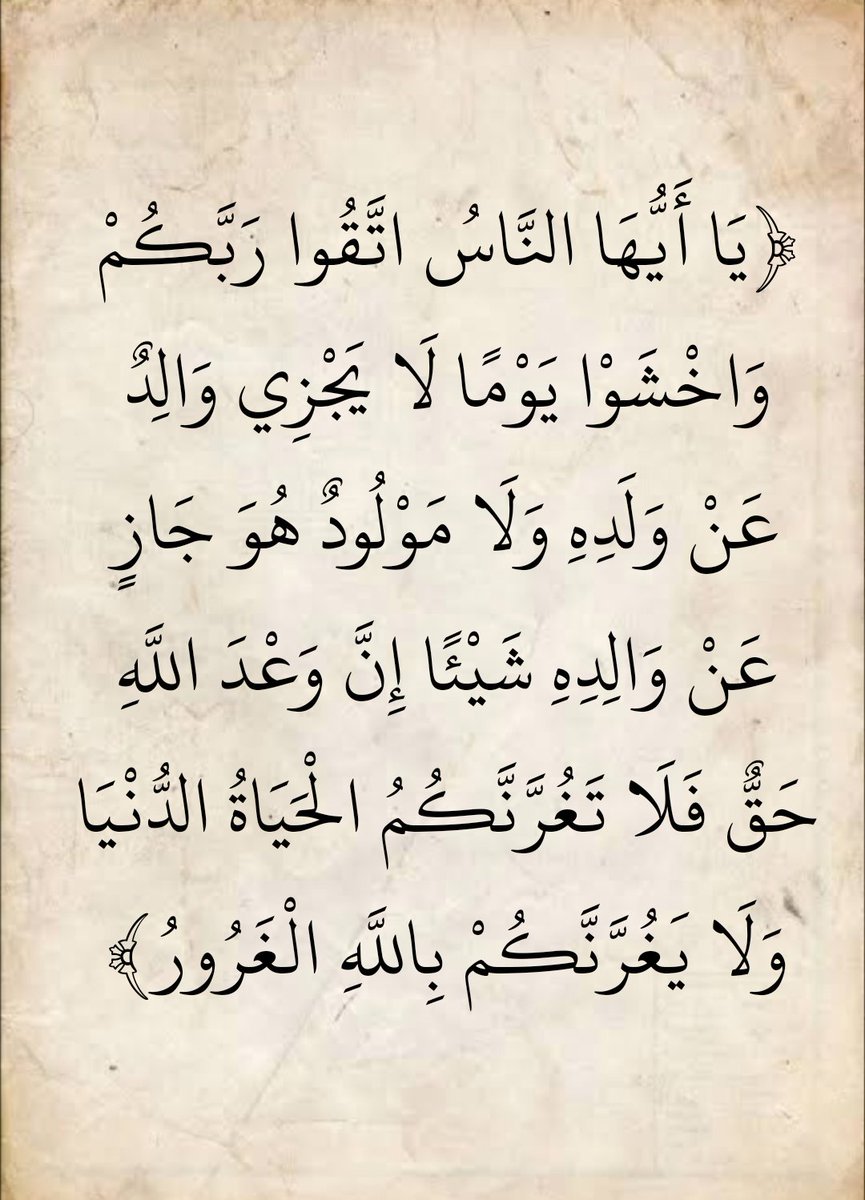 ﴿يَا أَيُّهَا النَّاسُ اتَّقُوا رَبَّكُمْ
وَاخْشَوْا يَوْمًا لَا يَجْزِي وَالِدٌ
عَنْ وَلَدِهِ وَلَا مَوْلُودٌ هُوَ جَازٍ
عَنْ وَالِدِهِ شَيْئًا إِنَّ وَعْدَ اللَّهِ
حَقٌّ فَلَا تَغُرَّنَّكُمُ الْحَيَاةُ الدُّنْيَا
وَلَا يَغُرَّنَّكُمْ بِاللَّهِ الْغَرُورُ﴾